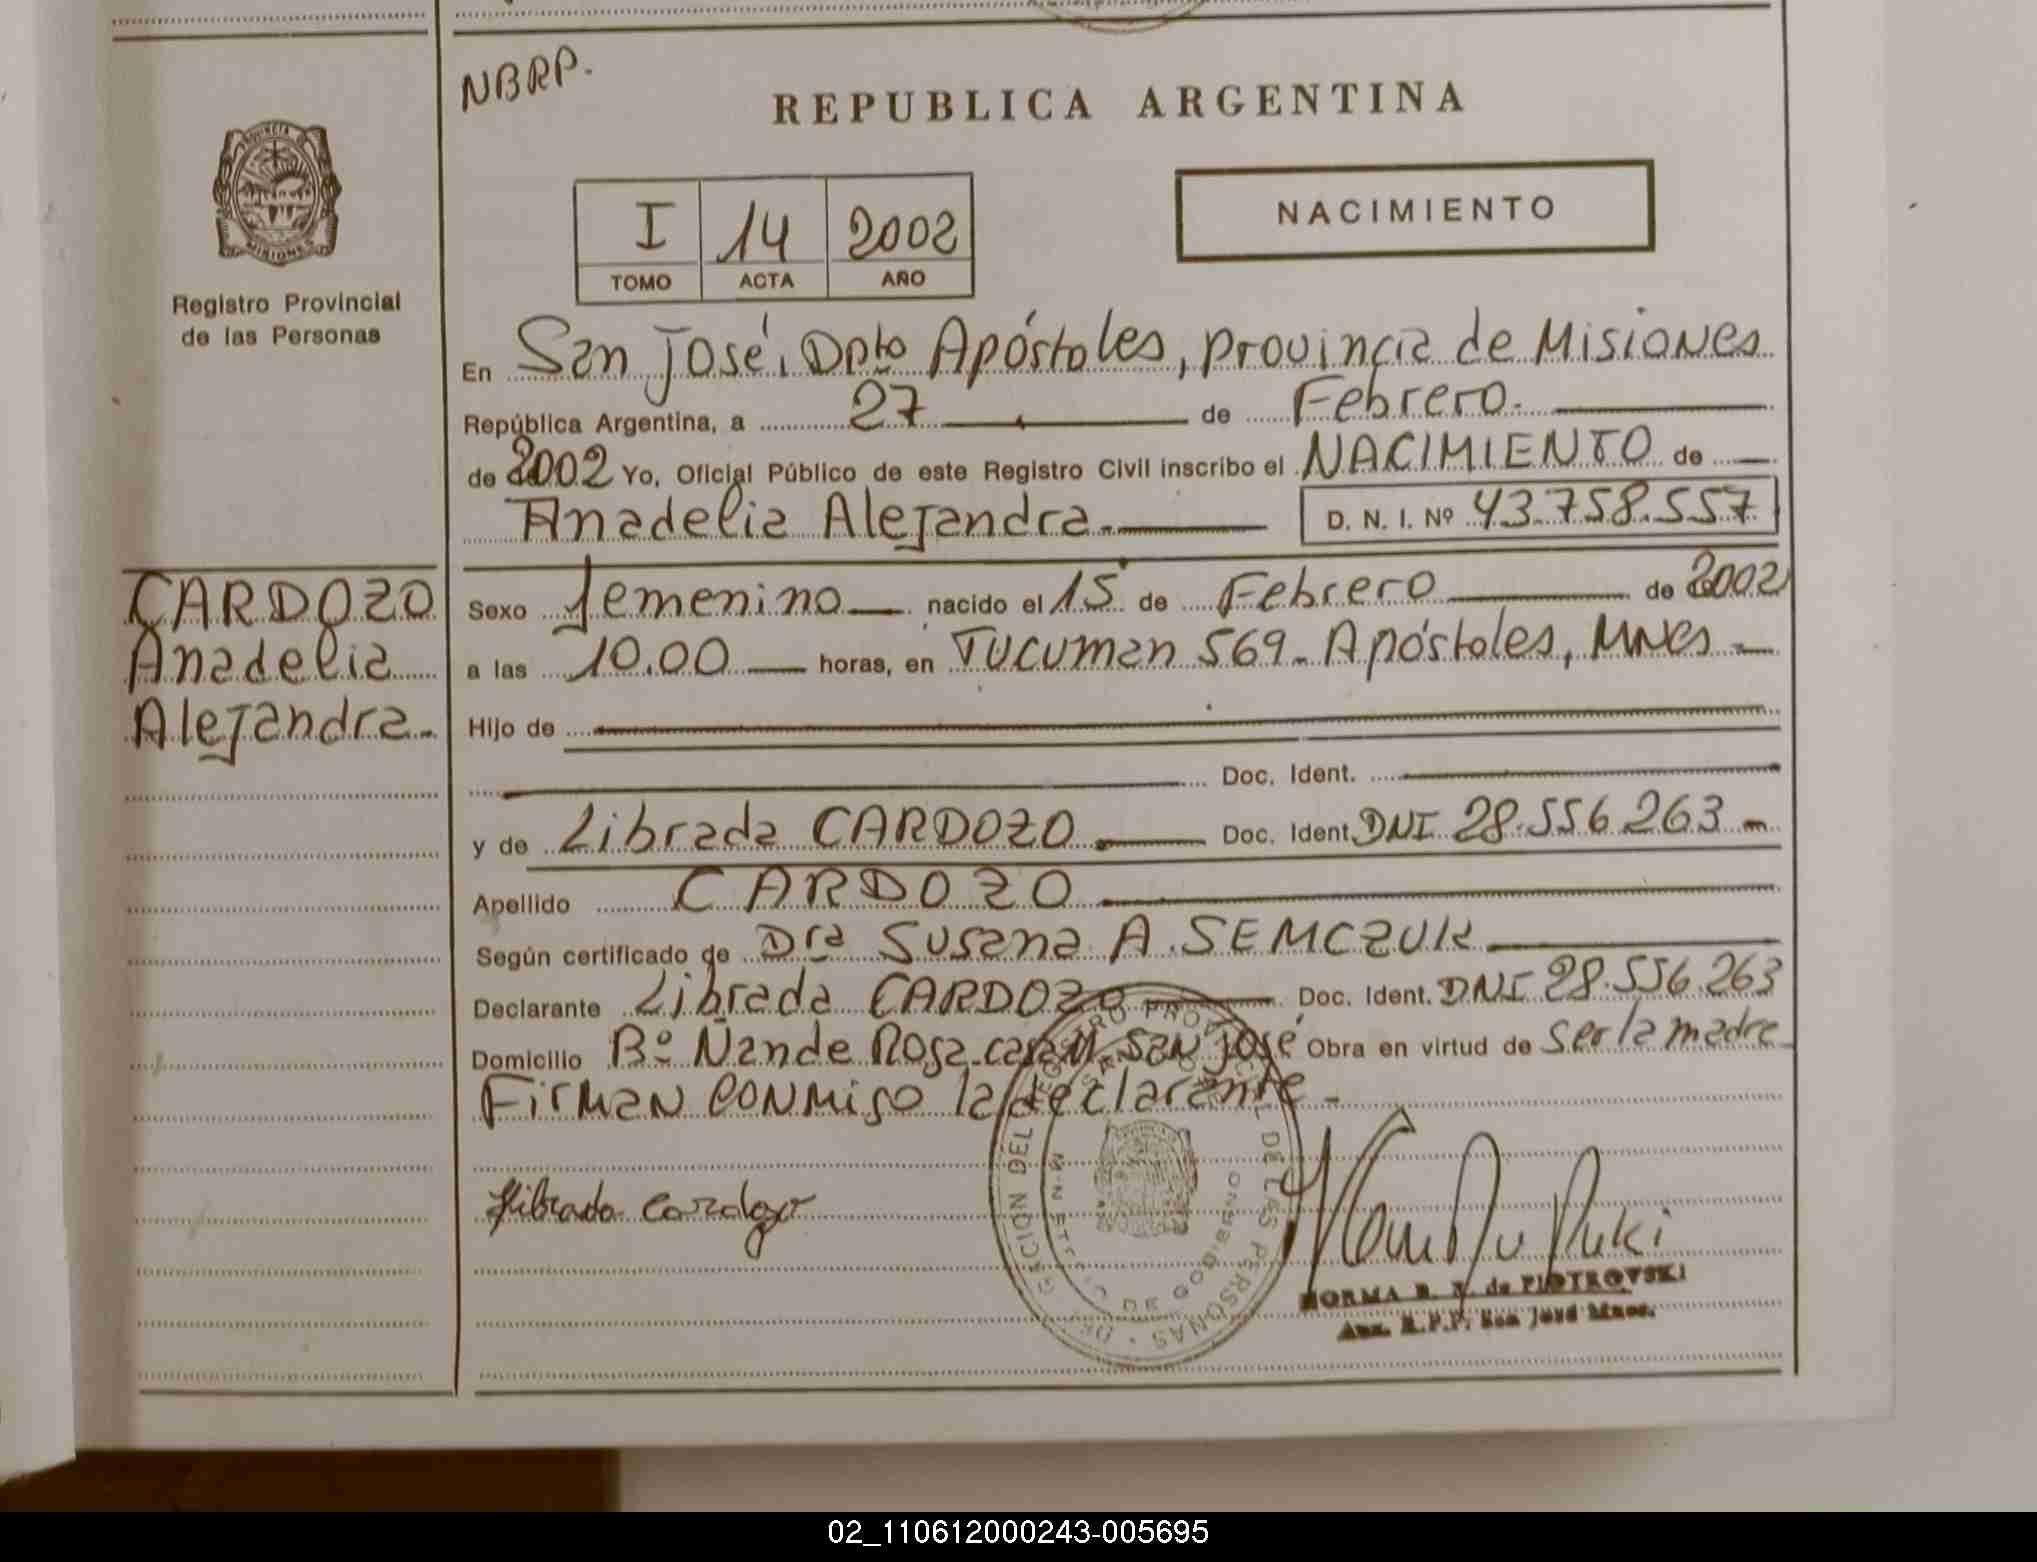 NBRP.
REPUBLICA ARGENTINA
PROVINCIA
MISIONES
Registro Provincial
de las Personas
I 14 2002
TOMO ACTA AÑO
NACIMIENTO
En San José, Dpto Apóstoles, Provincia de Misiones
República Argentina, a 27 de Febrero.
de 2002 Yo, Oficial Público de este Registro Civil inscribo el NACIMIENTO de
Anadelia Alejandra. D. N. I. Nº 43.758.557
CARDOZO
Anadelia
Alejandra.
Sexo femenino nacido el 15 de Febrero de 2002
a las 10.00 horas, en Tucuman 569 - Apóstoles, Mnes
Hijo de
Doc. Ident.
y de Librada CARDOZO Doc. Ident. DNI 28.556.263
Apellido CARDOZO
Según certificado de Dra Susana A. SEMCZUK
Declarante Librada CARDOZO Doc. Ident. DNI 28.556.263
Domicilio Bº Ñande Roga San José Obra en virtud de ser la madre
Firman conmigo la declarante.
Librada Cardozo
DEL REGISTRO PROVINCIAL DE LAS PERSONAS
NORMA B. de PIOTROVSKI
Aux. R.P.P. San José Mnes.
02_110612000243-005695